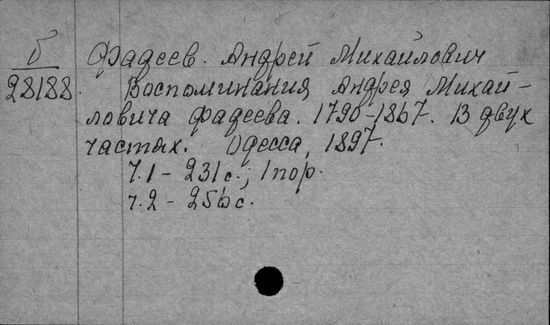 Б
28188
Фадеев. Андрей Михайлович
Воспоминания Андрея Михай-
ловича Фадеева. 1790-1867. В двух
частях. Одесса, 1897.
ч.1 - 231 с.; 1 пор.
ч.2 - 256 с.